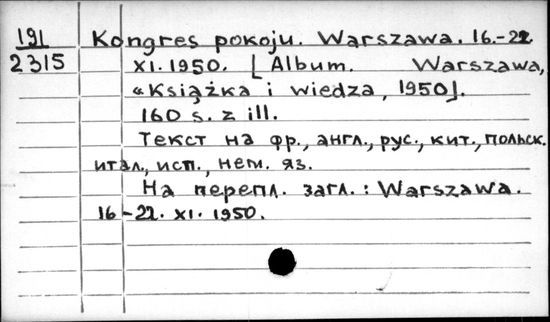 191 Kongres pokoju. Warszawa. 16.-22
2315 XI.1950. [Album. Warszawa,
«Książka i wiedza, 1950].
160 s. z ill.
Текст на фр., англ., рус., кит., польск.
итал., исп., нем. яз.
На перепл. загл.: Warszawa.
16-22. XI. 1950.